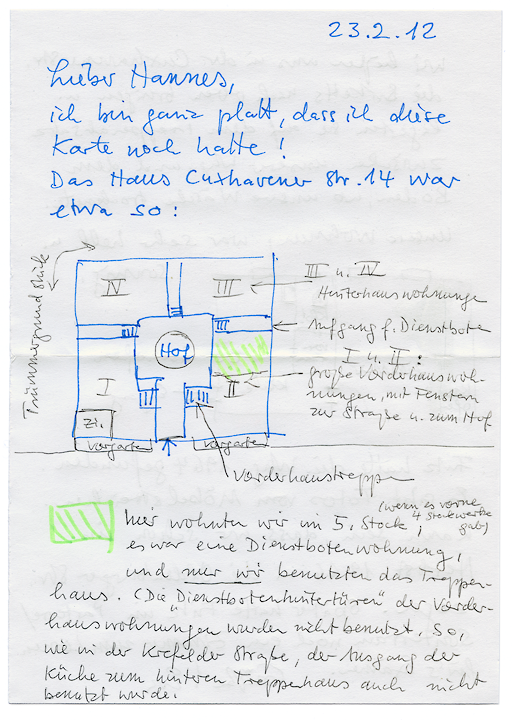 23.2.12
Lieber Hannes,
ich bin ganz platt, dass ich diese
Karte noch hatte!
Das Haus Cuxhavener Str. 14 war
etwa so:
Trümmergrundstück
IV
III
III u. IV
Hinterhauswohnungen
Aufgang f. Dienstbote
Hof
I
II
I u. II:
große Vorderhauswoh-
nungen, mit Fenstern
zur Straße u. zum Hof
Zi.
Vorgarten
Vorgarten
Vorderhaustreppe
hier wohnten wir im 5. Stock, (wenn es vorne
4 Stockwerke
gab)
es war eine Dienstbotenwohnung,
und nur wir benutzten das Treppen-
haus. (Die "Dienstbotenhintertüren" der Vorder-
hauswohnungen wurden nicht benutzt. So,
wie in der Krefelder Straße, der Ausgang der
Küche zum hinteren Treppenhaus auch nicht
benutzt wurde.